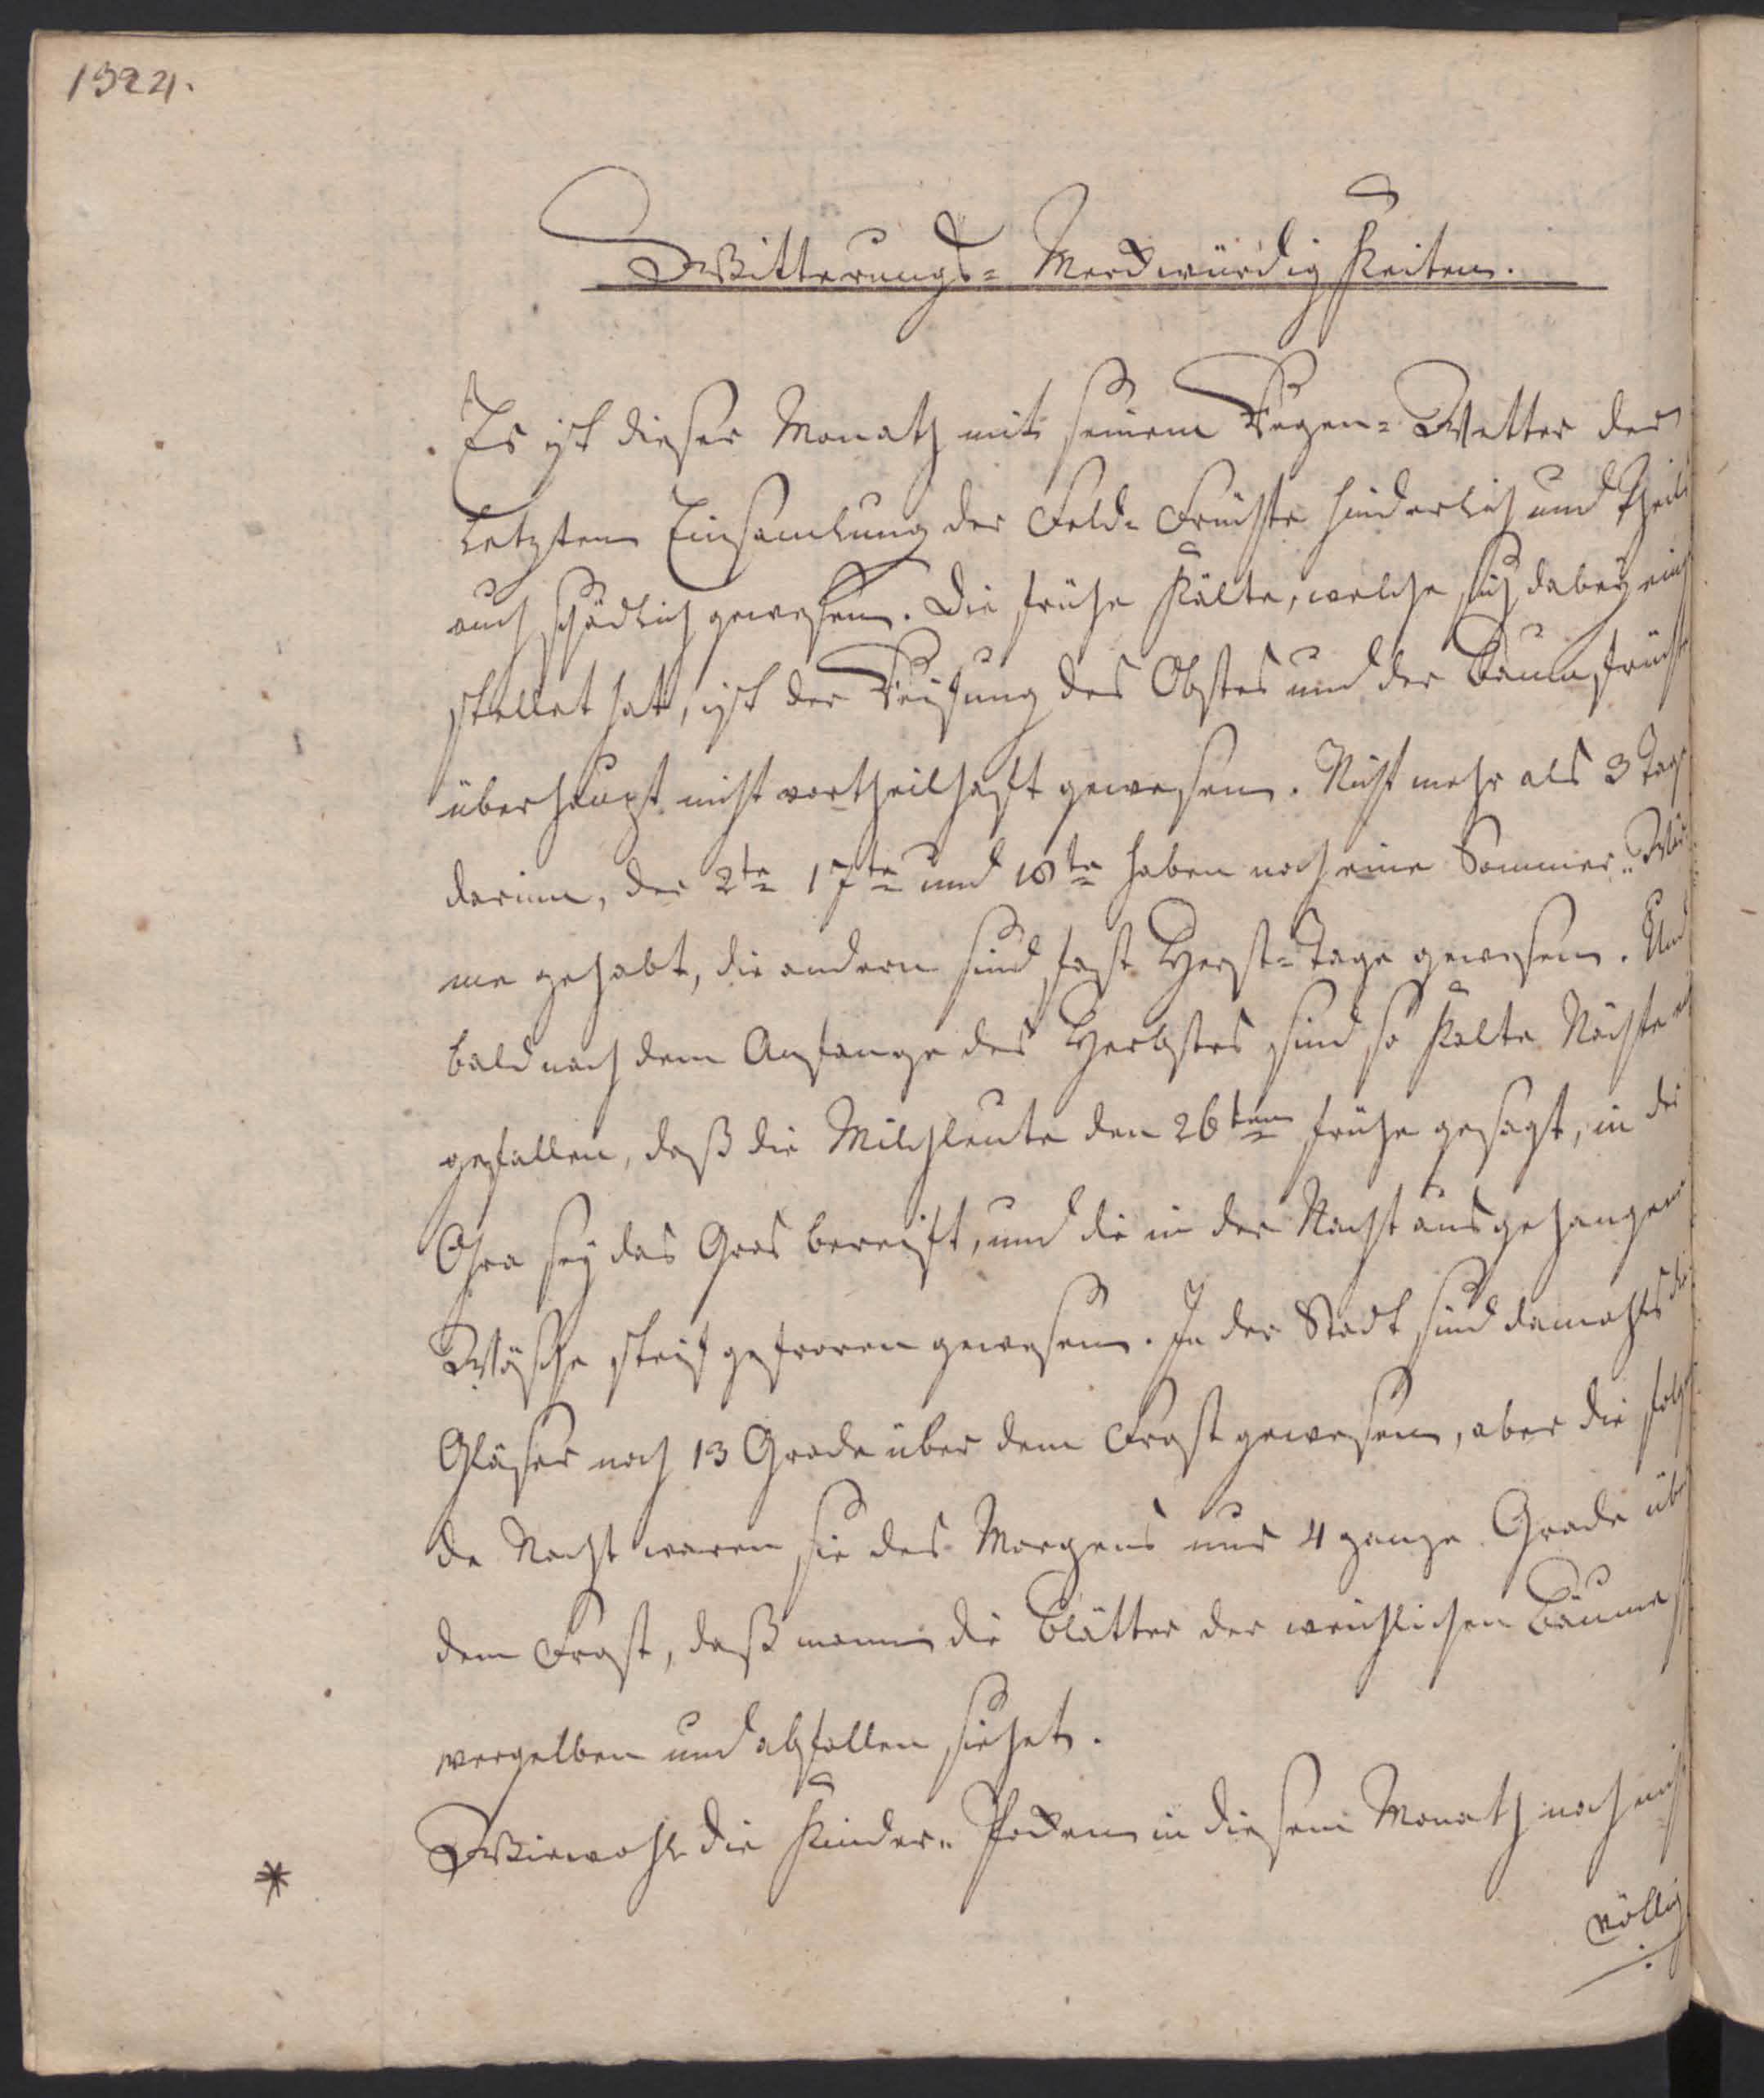 1324.
Witterungs- Merckwürdigkeiten.
Es ist dieser Monath mit seinem Regen-Wetter der
letzten Einsamlung der Feld-Früchte hinderlich und theils
auch schädlich gewesen. Die frühe Kälte, welche sich dabey ein
stellet hat, ist der Reifung des Obstes und der Baumfrüchte
überhaupt nicht vortheilhaft gewesen. Nicht mehr als 3 Tage
darinn, der 2te 17te und 18te haben noch eine Sommer-Wär
me gehabt, die andern sind fast Herbst-Tage gewesen. Und
bald nach dem Anfange des Herbstes sind so kalte Nächte
gefallen, daß die Milchleute den 26ten frühe gesagt, in der
Ohra sey das Gras bereift, und die in der Nacht ausgehangene
Wäsche steif gefroren gewesen. In der Stadt sind damahls die
Gläser noch 13 Grade über dem Frost gewesen, aber die folgen
de Nacht waren sie des Morgens nur 4 ganze Grade über
dem Frost, daß mann die Blätter der weichlichen Bäume
vergelben und abfallen siehet.
* Wiewohl die Kinder-Pocken in diesem Monath noch nicht
völlig